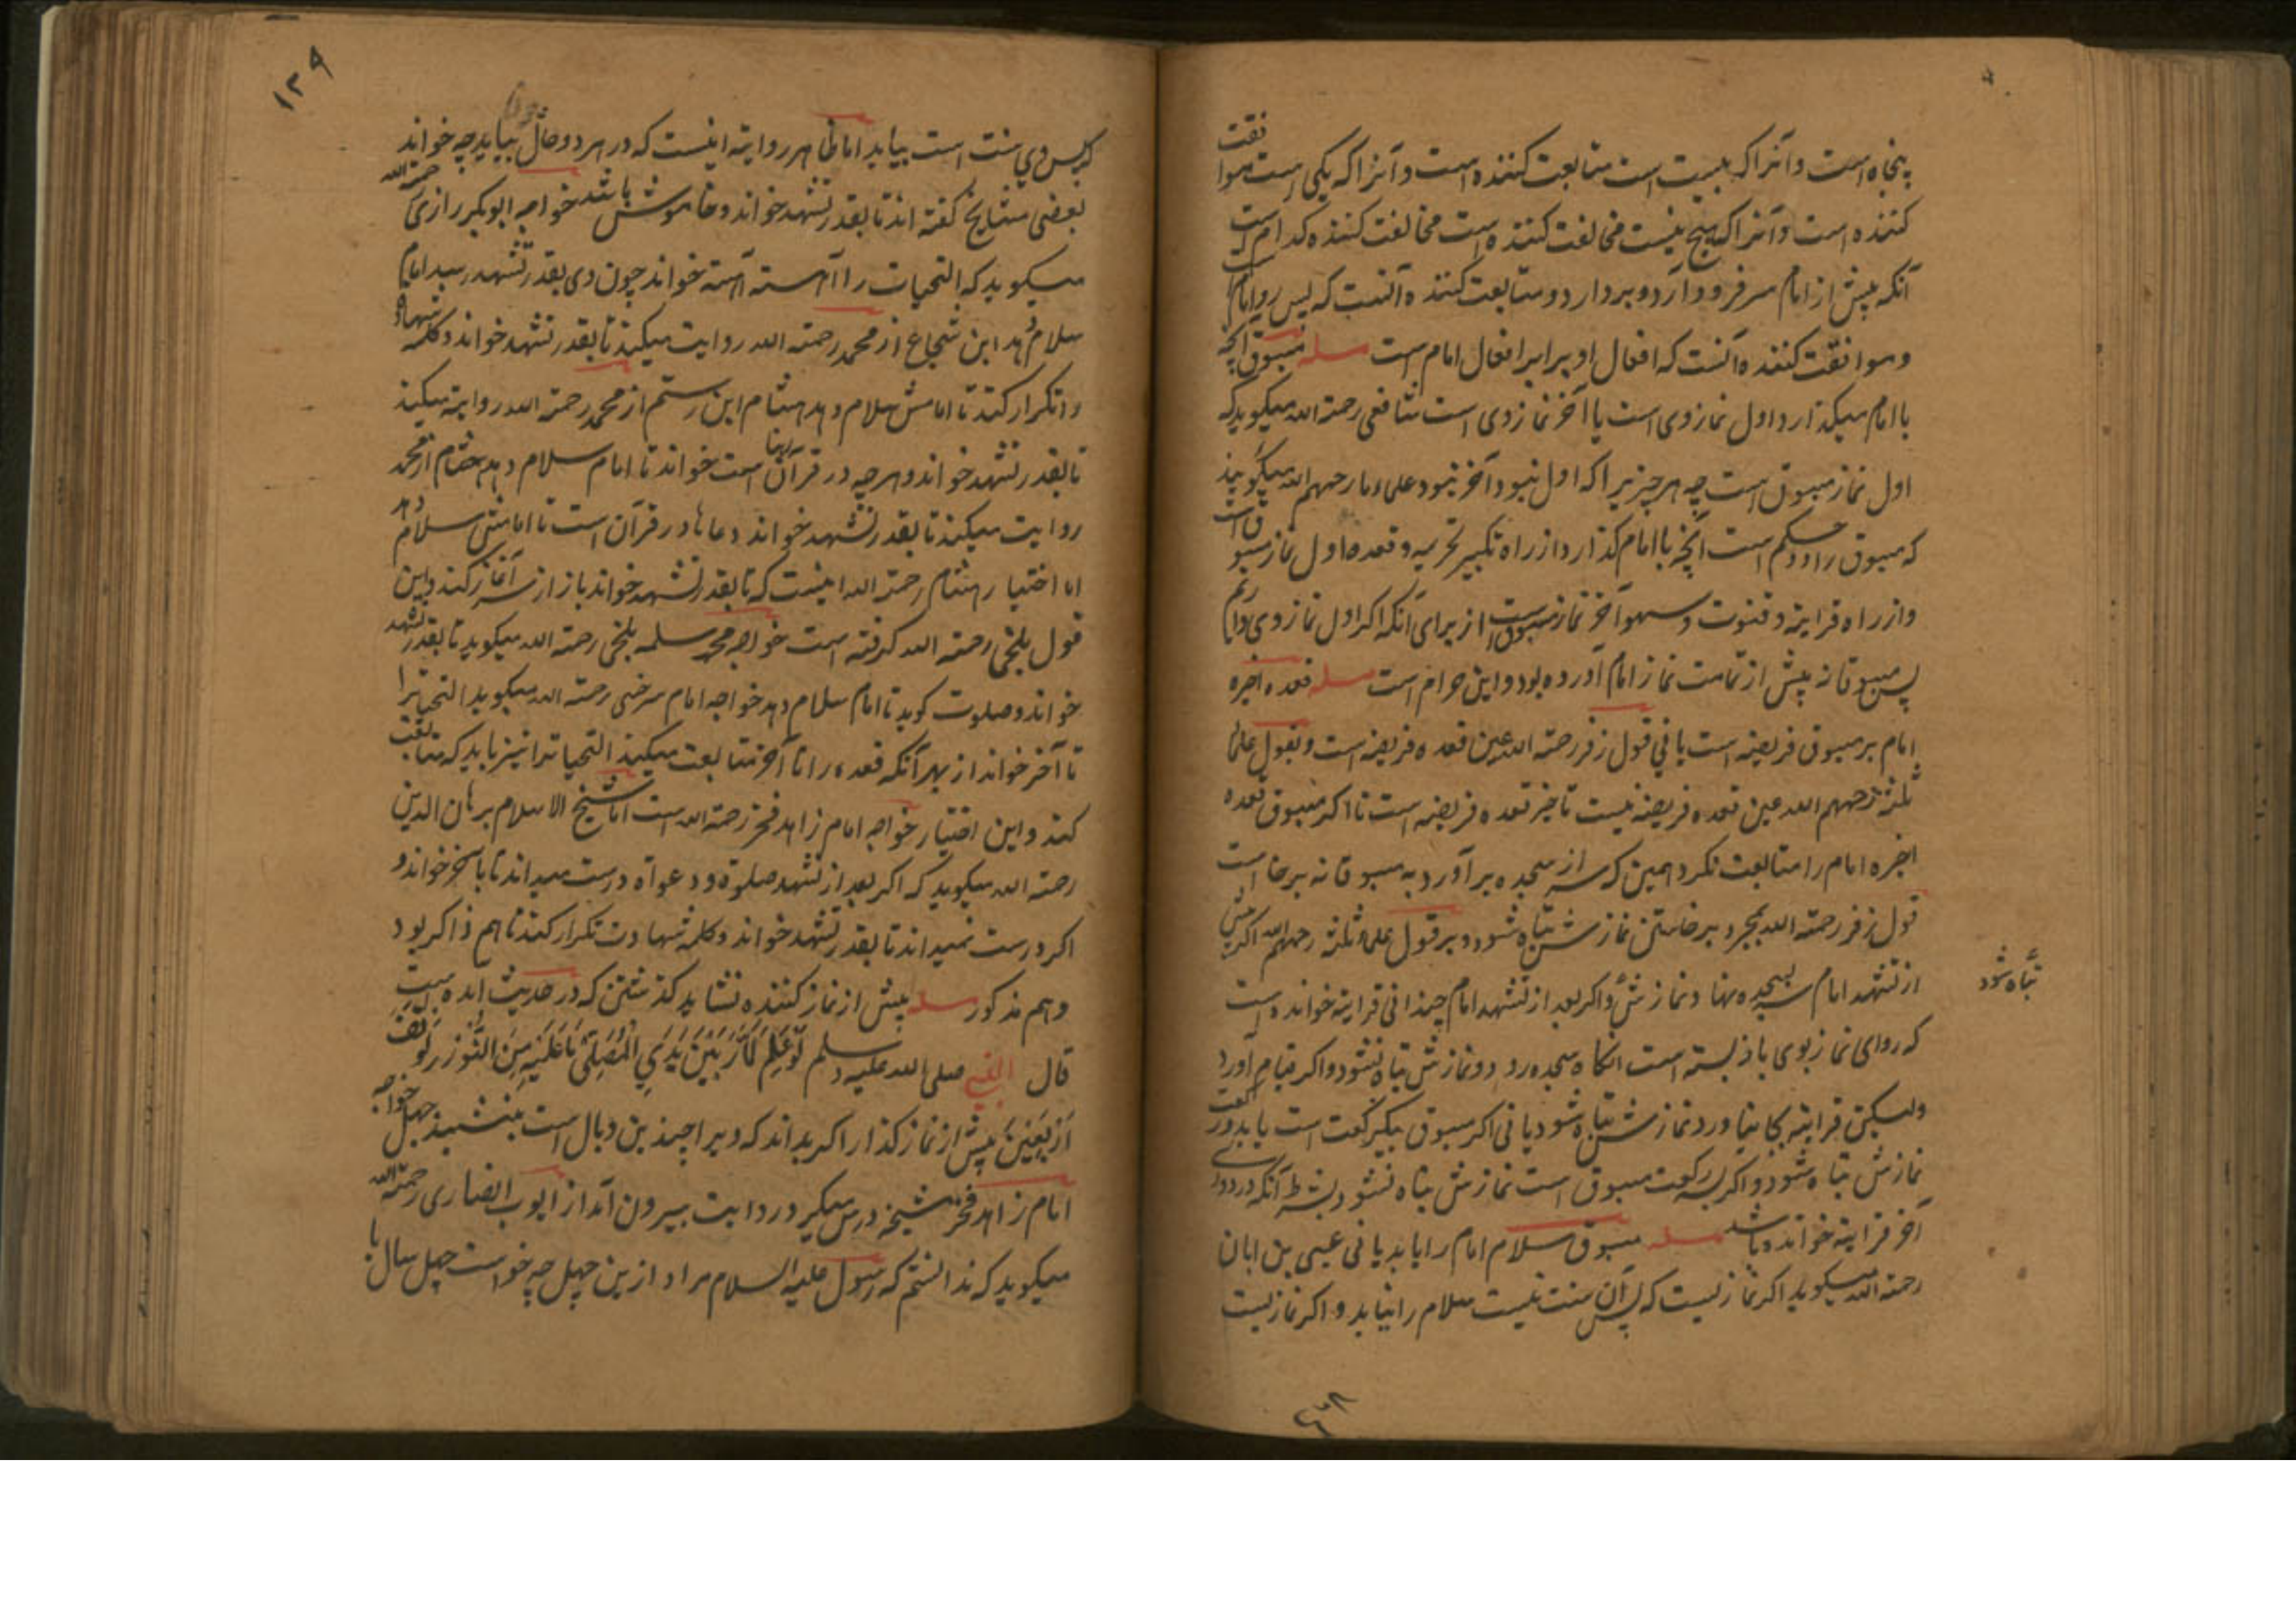 پنجاه است و آنرا که بیست است متابعت کننده است و آنرا که یکی است موافقت
کننده است و آنرا که هیچ نیست مخالفت کننده است مخالفت کننده کدام است
آنکه پیش از امام سر فرود آرد و بر دارد و متابعت کننده آنست که پس رو امام است
و موافقت کننده آنست که افعال او برابر افعال امام است مسله مسبوق آنچه
با امام میکذارد اول نماز وی است یا آخر نماز وی است شافعی رحمة الله میکوید که
اول نماز مسبوق است چه هر چیزیرا که اول نبود آخر نبود و علماء ما رحمهم الله میکویند
که مسبوق را دو حکم است آنچه با امام کذارد از راه تکبیر تحریمه و قعده اول نماز مسبوق است
و از راه قرایته و قنوت و سهو آخر نماز مسبوق است از برای آنکه اکر اول نماز وی داریم
پس مسبوقانه پیش از تمامت نماز امام آورده بود و این حرام است مسله قعده اخیره
امام بر مسبوق فریضه است یا نی قول زفر رحمة الله عین قعده فریضه است و بقول علماء
ثلثه رحمهم الله عین قعده فریضه نیست تاخیر قعده فریضه است تا اکر مسبوق قعده
اخیره امام را متابعت نکرد همین که سر از سجده بر آورد به مسبوقانه برخاست
قول زفر رحمة الله بمجرد برخاستن نمازش تباه شود و بر قول علماء ثلثه رحمهم الله اکر پیش
از تشهد امام سر بسجده نهاد نمازش و اکر بعد از تشهد امام چندانی قرایته خوانده است
تباه شود
که روای نماز بوی باز بسته است آنکاه سجده رود و نمازش تباه نشود و اکر قیام آورد
ولیکن قرایته بجا نیاورد نمازش تباه شود یا نی اکر مسبوق بیک رکعت است یا بدو رکعت
نمازش تباه شود و اکر بسه رکعت مسبوق است نمازش تباه نشود بشرط آنکه در دو
آخر قرایته خوانده باشد مسله مسبوق سلام امام را یابد یا نی عیسی بن ابان
رحمة الله میکوید اکر نمازیست که پس آن سنت نیست سلام را نیابد و اکر نمازیست
۱۳۹
که پس وی سنت است بیابد اما ظاهر روایته اینست که در هر دو حال بیابد چه خواند
بعضی مشایخ کفته اند تا بقدر تشهد خواند و خاموش باشد خواجه ابوبکر رازی رحمة الله
میکوید که التحیات را آهسته آهسته خواند چون وی بقدر تشهد رسد امام
سلام دهد ابن شجاع از محمد رحمة الله روایت میکند تا بقدر تشهد خواند و کلمه شهادة
را تکرار کند تا امامش سلام دهد هشام ابن رستم از محمد رحمة الله روایته میکند
تا بقدر تشهد خواند و هر چه در قرآن ربنا است خواند تا امام سلام دهد هشام از محمد
روایت میکند تا بقدر تشهد خواند دعاها در قرآن است تا امامش سلام دهد
اما اختیار هشام رحمة الله اینست که تا بقدر تشهد خواند باز از سر آغاز کند و این
قول بلخی رحمة الله کرفته است خواجه محمد سلمه بلخی رحمة الله میکوید تا بقدر تشهد
خواند و صلوت کوید تا امام سلام دهد خواجه امام سرخسی رحمة الله میکوید التحیاترا
تا آخر خواند از بهر آنکه قعده را تا آخر متابعت میکند التحیاترا نیز باید که متابعت
کند و این اختیار خواجه امام زاهد فخر رحمة الله است اما شیخ الاسلام برهان الدین
رحمة الله میکوید که اکر بعد از تشهد صلوة و دعواة درست میداند تا بآخر خواند و
اکر درست نمیداند تا بقدر تشهد خواند و کلمه شهادت تکرار کند تا هم ذاکر بود
و هم مذکور مسله پیش از نماز کننده نشاید کذشتن که در حدیث آمده است
قال النبی صلی الله علیه وسلم لَوْ عَلِمَ الْمَارُّ بَيْنَ يَدَيِ الْمُصَلِّي مَا عَلَيْهِ مِنَ الْوِزْرِ لَوَقَفَ
اَرْبَعِينَ پیش از نماز کذار اکر بداند که ویرا چند بن وبال است بنشیند چهل خواجه
امام زاهد فخر مشیخه درس میکیر در روایت بیرون آمد از ایوب انصاری رحمة الله
میکوید که ندانستم که رسول علیه السلام مراد ازین چهل چه خواست چهل سال یا